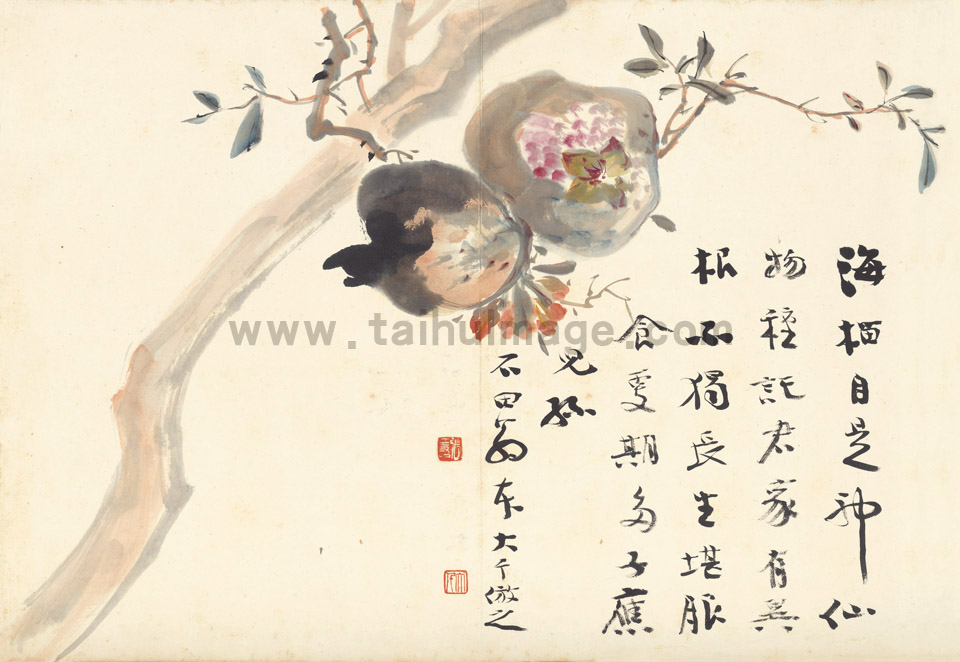 海榴自是神仙
物種託君家有異
根不獨長生堪服
食更期多子應
兒孫
石田翁本大千倣之
張爰
大千
www.taihuimage.com